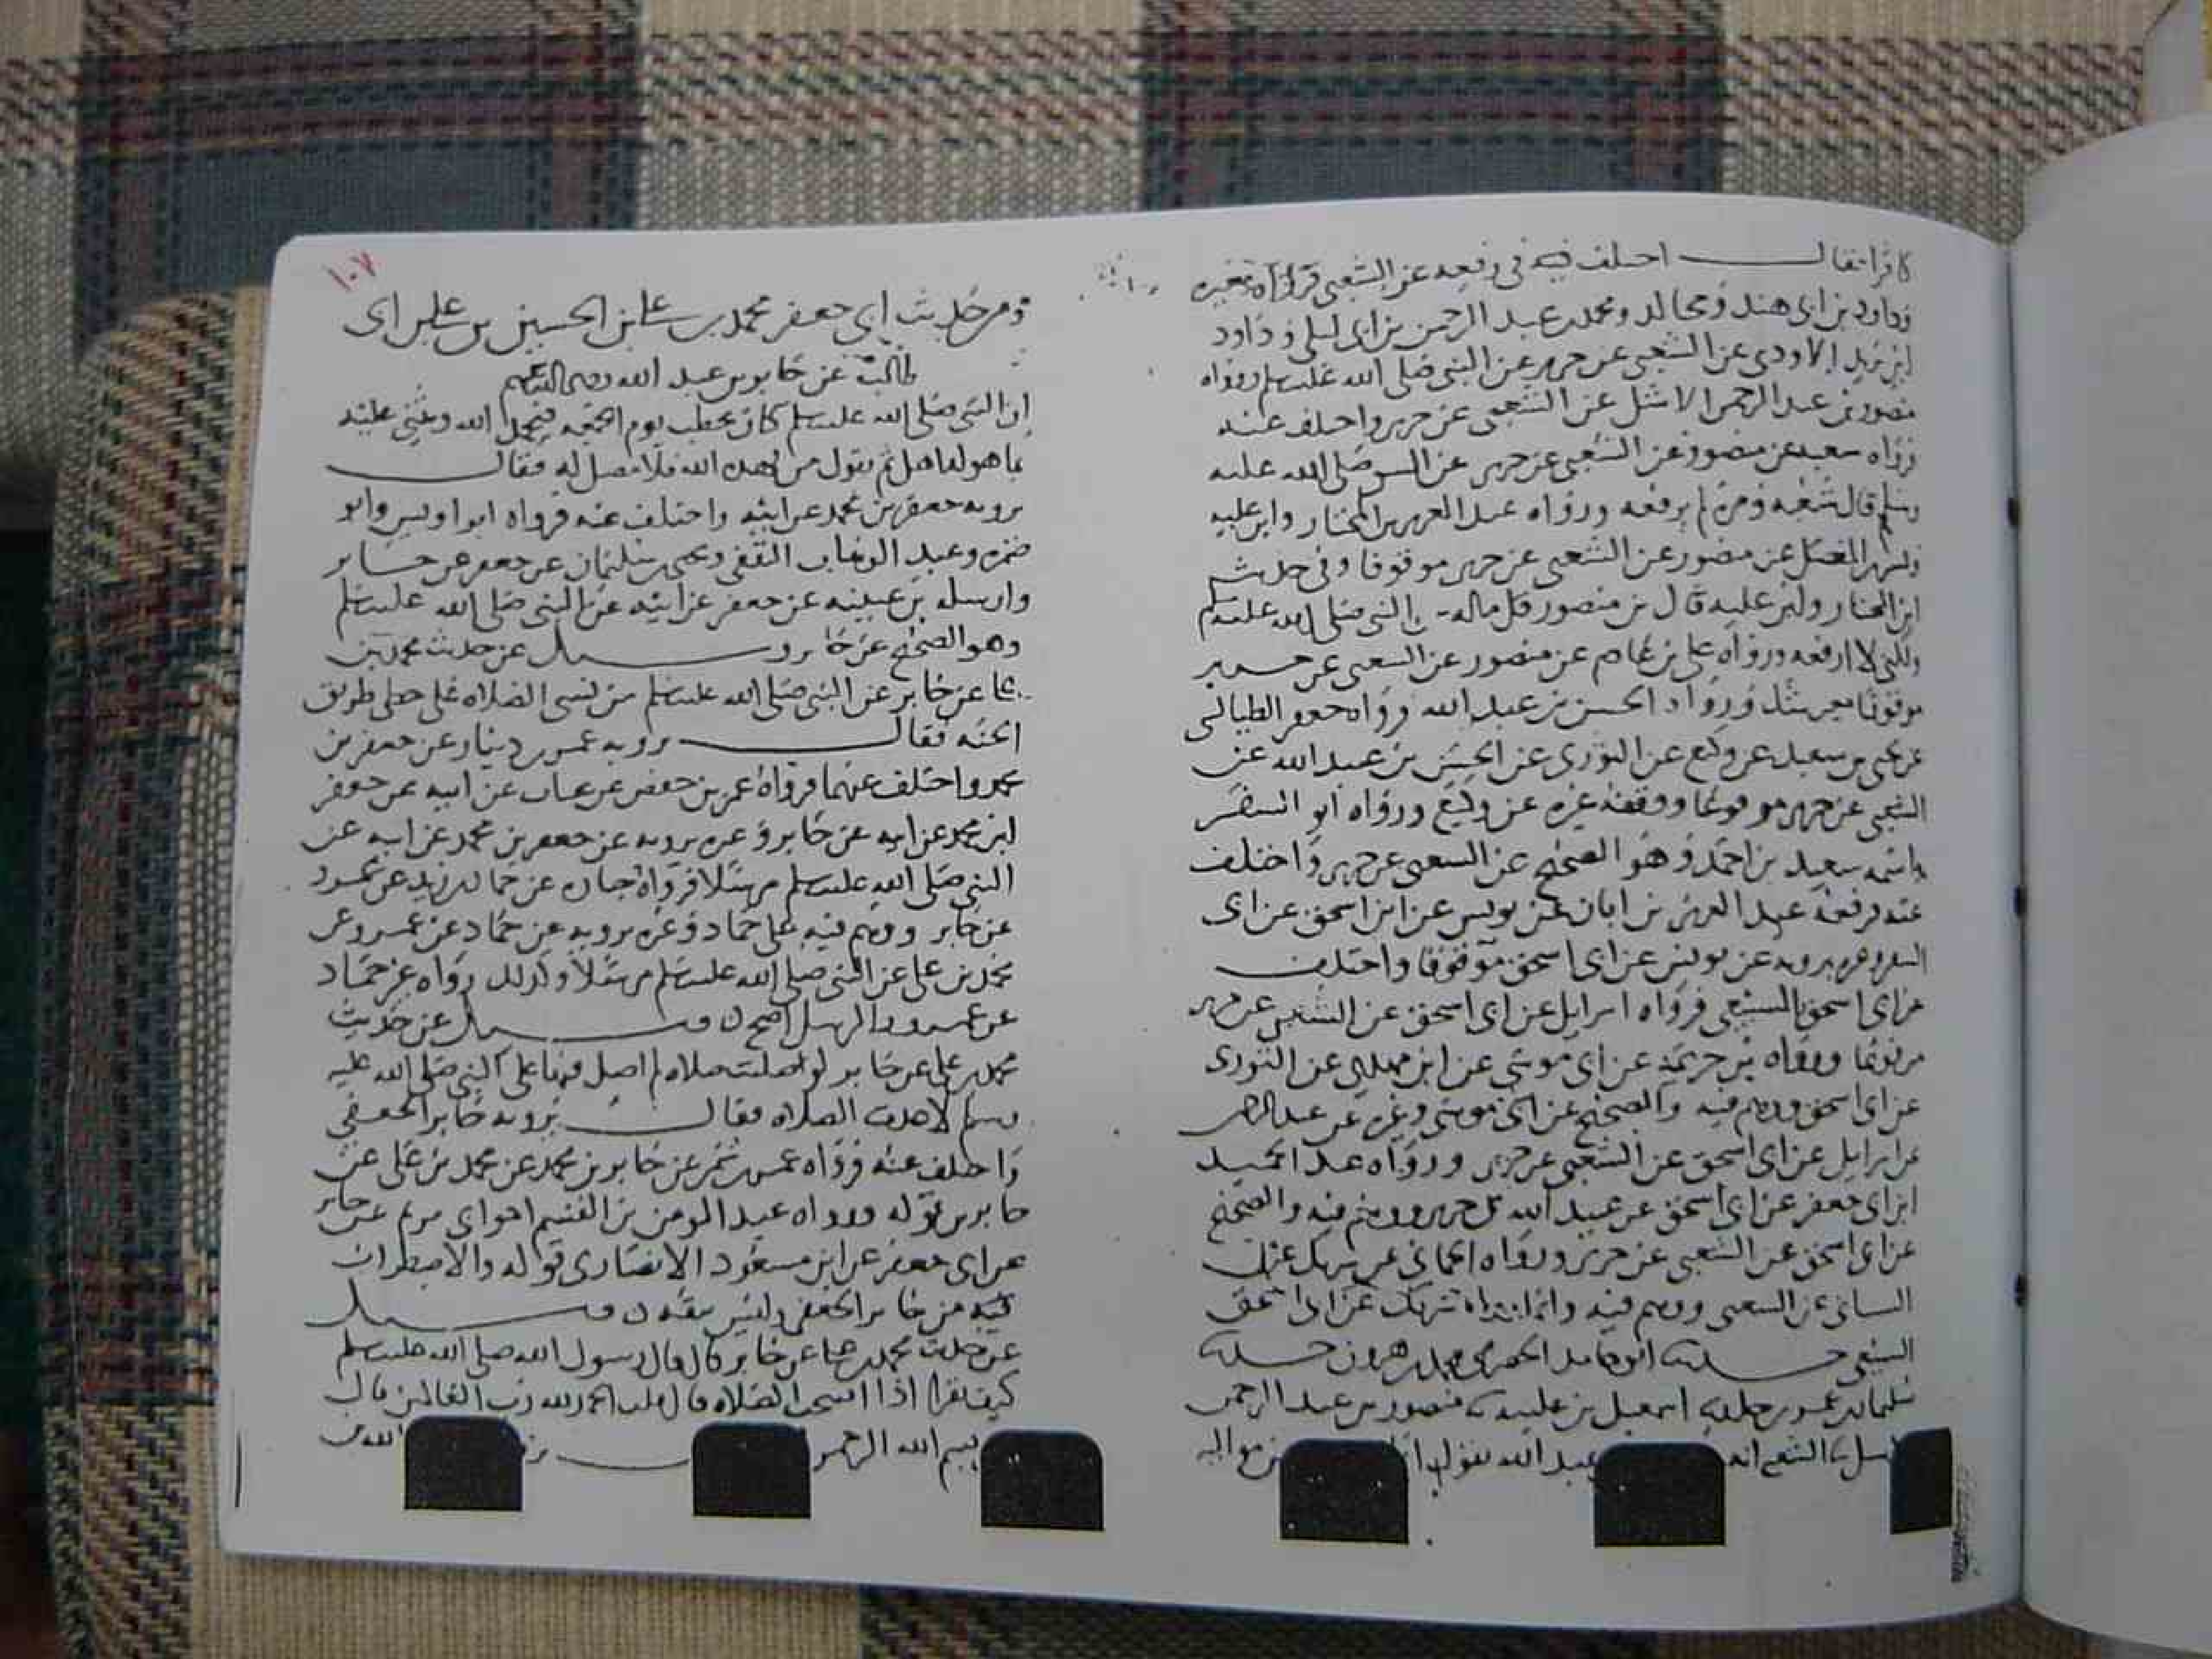 كافرا فقال اختلف فيه في رفعه عن الشعبي فرواه مغيرة
وداود بن ابي هند ومجالد ومحمد بن عبد الرحمن بن ابي ليلى وداود
ابن يزيد الاودي عن الشعبي عن جرير عن النبي صلى الله عليه وسلم ورواه
منصور بن عبد الرحمن الاشل عن الشعبي عن جرير واختلف عنه
فرواه عن منصور عن الشعبي عن جرير عن النبي صلى الله عليه
وسلم قال شعبه ومرة لم يرفعه ورواه عبد العزيز بن المختار وابن عليه
وبشر بن المفضل عن منصور عن الشعبي عن جرير موقوفا وفي حديث
ابن المختار وابن عليه قال بن منصور النبي صلى الله عليه وسلم
ولكني لا ارفعه ورواه علي بن عاصم عن منصور عن الشعبي عن جرير
موقوفا الحسن بن عبيد الله فرواه جعفر الطيالسي
عن يحيى عن وكيع عن الثوري عن الحسن بن عبيد الله عن
الشعبي عن جرير مرفوعا ووقفه غيره عن وكيع ورواه ابو السفر
واسمه سعيد بن احمد وهو الصحيح عن الشعبي عن جرير واختلف
عنه فرفعه عبد العزيز بن ابان عن يونس عن ابن اسحق عن ابي
السفر وغيره يرويه عن يونس عن ابي اسحق موقوفا واختلف
عن ابي اسحق السبيعي فرواه اسرايل عن ابي اسحق عن الشعبي عن جرير
مرفوعا ورواه بن خزيمة عن ابي موسى عن ابن مهدي عن الثوري
عن ابي اسحق ووهم فيه والصحيح عن ابي موسى وغيره عن عبد الرحمن
عن اسرايل عن ابي اسحق عن الشعبي عن جرير ورواه عبد الحميد
ابن ابي جعفر عن ابي اسحق عن عبيد الله بن جرير ووهم فيه والصحيح
عن ابي اسحق عن الشعبي عن جرير ورواه الحماني عن شريك عن
عن الشعبي ووهم فيه وانما رواه شريك عن ابي اسحق
السبيعي حدثنا ابو حامد الحضرمي محمد بن هرون حدثنا
سليمان بن عمر بن خالد اسمعيل بن عليه منصور بن عبد الرحمن
الشعبي انه عبد الله يقول مواليه
١٠٧
ومن حديث ابي جعفر محمد بن علي بن الحسين بن علي بن ابي
طالب عن جابر بن عبد الله رضي الله عنهم
ان النبي صلى الله عليه وسلم كان يخطب يوم الجمعه فيحمد الله ويثني عليه
بما هو له اهل ثم يقول من يهده الله فلا مضل له فقال
يرويه جعفر بن محمد عن ابيه واختلف عنه فرواه ابو اويس وابو
ضمره وعبد الوهاب الثقفي ويحيى بن سليمان عن جعفر عن جابر
وارسله بن عيينه عن جعفر عن ابيه عن النبي صلى الله عليه وسلم
وهو الصحيح عن جابر وسيل عن حديث محمد بن
علي عن جابر عن النبي صلى الله عليه وسلم من نسي الصلاه علي خطي طريق
الجنه فقال يرويه عمرو بن دينار عن جعفر بن
محمد واختلف عنهما فرواه عمر بن حفص بن غياث عن ابيه عن جعفر
ابن محمد عن ابيه عن جابر وغيره يرويه عن جعفر بن محمد عن ابيه عن
النبي صلى الله عليه وسلم مرسلا فرواه عن حماد بن زيد عن عمرو
عن جابر ووهم فيه على حماد وغيره يرويه عن حماد عن عمرو عن
محمد بن علي عن النبي صلى الله عليه وسلم مرسلا وكذلك رواه عن حماد
عن عمرو والمرسل اصح وسيل عن حديث
محمد بن علي عن جابر لو صليت صلاه لم اصل فيها على النبي صلى الله عليه
وسلم الصلاه فقال يرويه جابر الجعفي
واختلف عنه فرواه عمرو بن شمر عن جابر عن محمد بن علي عن
جابر من قوله ورواه عبد المومن بن القسم اخو ابي مريم عن جابر
عن ابي جعفر عن ابن مسعود الانصاري قوله والاضطراب
فيه من جابر الجعفي وليس بثقه وسيل
عن حديث محمد بن علي عن جابر قال قال رسول الله صلى الله عليه وسلم
كيف تقرا اذا افتتحت الصلاه قال قلت الحمد لله رب العالمين قال
بسم الله الرحمن